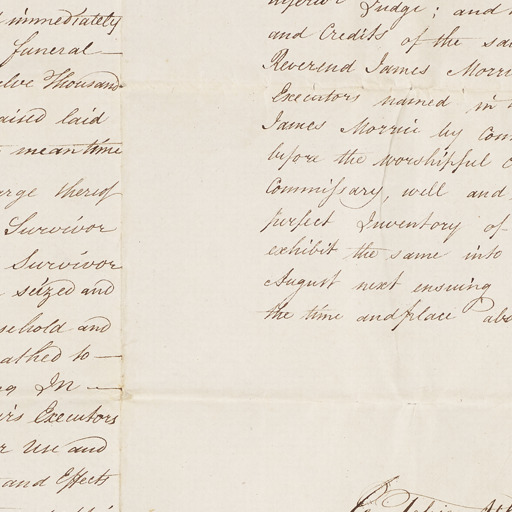 immediately
funeral
Thousand
raised laid
meantime
thereof
Survivor
Survivor
seized and
and
to
In
Executors
Use and
and Effects
Judge; and
and Credits of the
Reverend James Morri
Executors named in
James Morrie by Com
before the worshipful
Commissary, well and
perfect Inventory of
exhibit the same into
August next ensuing
the time and place abo